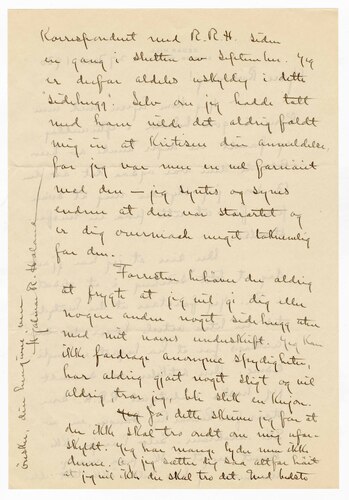 Korrespondent med R.R.H. siden
en gang i slutten av September. Jeg
er derfor aldeles uskyldig i dette
sidehugg. Selv om jeg hadde talt
med ham vilde det aldrig faldt
mig in at kritisere din anmeldelse,
for jeg var mere en vel fornøiet
med den — jeg syntes og synes
endnu at den var storartet og
er dig overmaade meget taknemlig
for den.
Forresten behøver du aldrig
at frygte at jeg vil gi dig eller
nogen anden noget sidehugg uten
med mit navns underskrift. Jeg kan
ikke fordrage anonyme spydigheter,
har aldrig gjort noget sligt og vil
aldrig, tror jeg, bli slik en kujon.
Ja, dette skriver jeg for at
du ikke skal tro ondt om mig ufor-
skyldt. Jeg har mange lyder men ikke
denne. Og jeg sætter dig saa altfor høit
at jeg vil ikke du skal tro det. Med bedste
ønsker, din hengivne ven
Hjalmar R. Holand